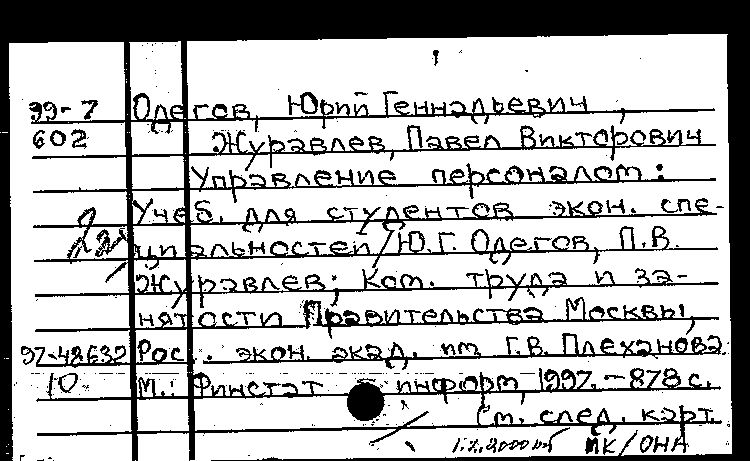 99-7 Одегов, Юрий Геннадьевич,
602 Журавлев, Павел Викторович
Управление персоналом:
Учеб. для студентов экон. спе-
циальностей / Ю.Г. Одегов, П.В.
Журавлев; Ком. труда и за-
нятости Правительства Москвы,
97-48632 Рос. экон. акад. им Г.В. Плеханова
10 М.: Финстат информ, 1997. - 878 с.
См. след. карт.
1.2.2000 МК/ОНА